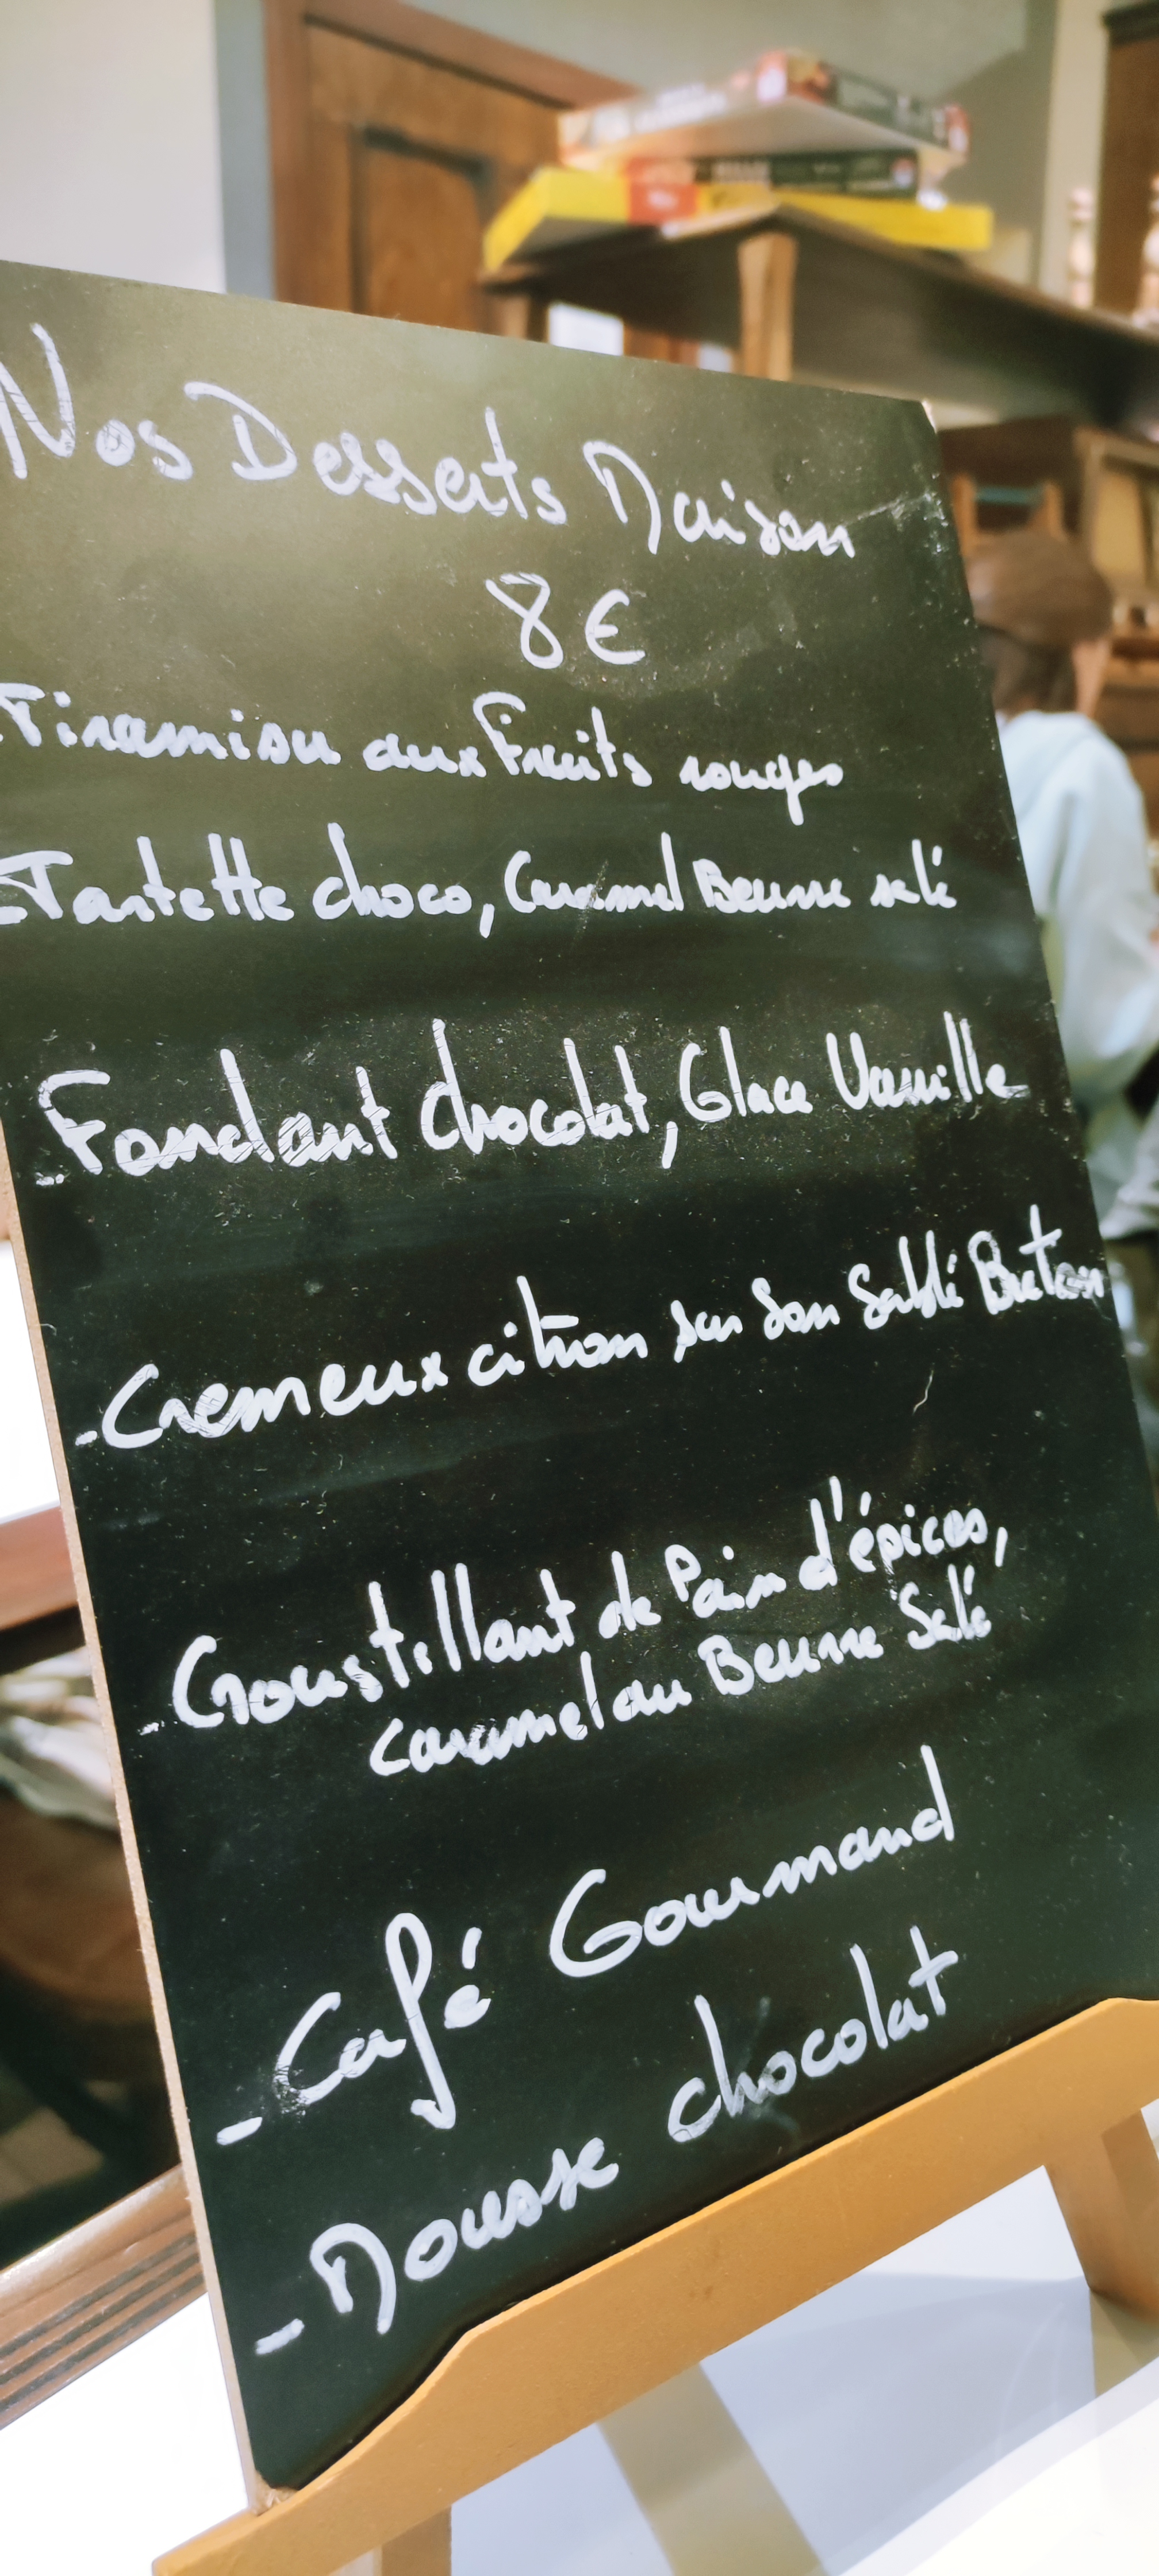 Nos Desserts Maison
8€
-Tiramisu aux Fruits rouges
-Tartette choco, Caramel Beurre salé
-Fondant chocolat, Glace Vanille
-Cremeux citron sur son Sablé Breton
-Croustillant de Pain d'épices,
caramel au Beurre Salé
-Café Gourmand
-Mousse chocolat